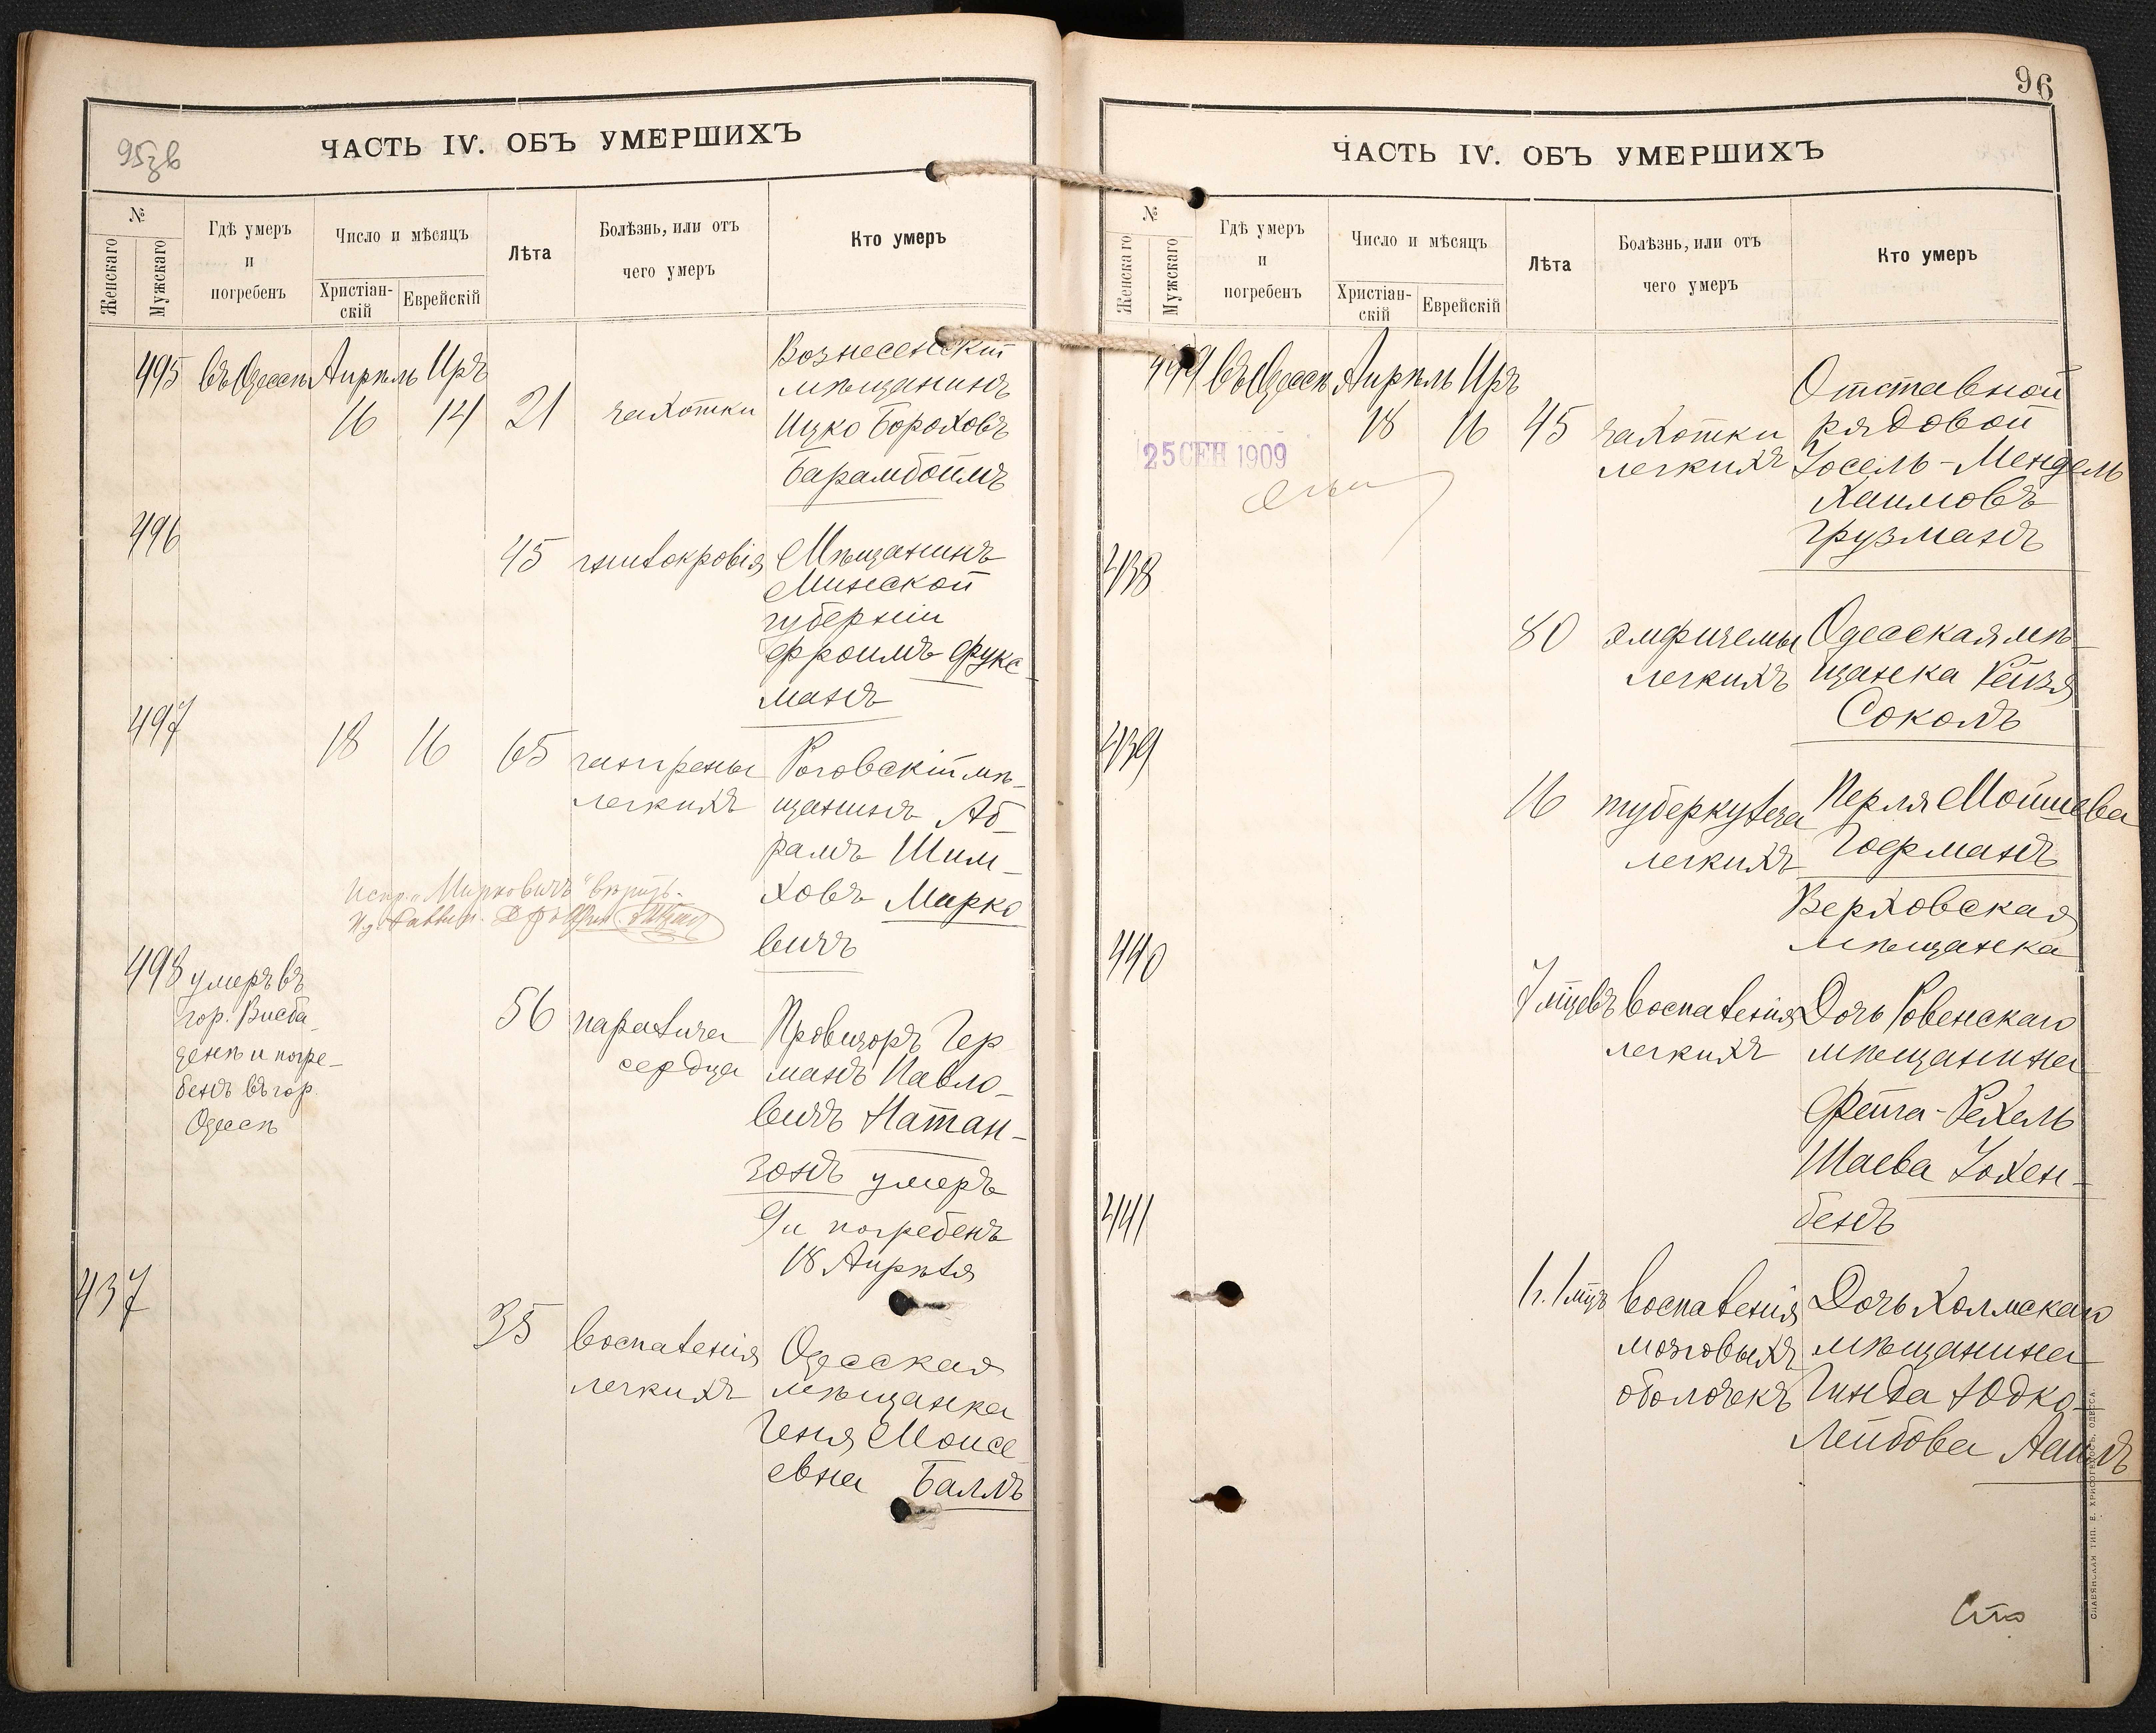 95 зв
ЧАСТЬ IV. ОБЪ УМЕРШИХЪ
№
Женскаго
Мужскаго
Гдѣ умеръ
и
погребенъ
Число и мѣсяцъ
Христіан-
скій
Еврейскій
Лѣта
Болѣзнь, или отъ
чего умеръ
Кто умеръ
495 въ Одессѣ Апрѣль Иръ
16 14 21 чахотки
Вознесенскій
мѣщанинъ
Ицко Бороховъ
Барамбоймъ
496
45 гнилокровія
Мѣщанинъ
Минской
губерніи
Фроимъ Фукс
манъ
497
18 16 65 гангрены
легкихъ
Роговскій мѣ-
щанинъ Аб-
рамъ Шим-
ховъ Марко
вичъ
Испр. „Марковичъ" вѣрить.
498 умеръ въ
гор. Висба-
денѣ и погре-
бенъ въ гор.
Одессѣ
56 паралича
сердца
Провизоръ Гер
манъ Павло-
вичъ Натан-
зонъ умеръ
9 и погребенъ
18 Апрѣля
437
35 воспаленія
легкихъ
Одесская
мѣщанка
Геня Моисе
евна Балъ
96
ЧАСТЬ IV. ОБЪ УМЕРШИХЪ
№
Женскаго
Мужскаго
Гдѣ умеръ
и
погребенъ
Число и мѣсяцъ
Христіан-
скій
Еврейскій
Лѣта
Болѣзнь, или отъ
чего умеръ
Кто умеръ
499 въ Одессѣ Апрѣль Иръ
18 16 45 чахотки
легкихъ
Отставной
рядовой
Іосель-Мендель
Хаимовъ
Грузманъ
25 СЕН 1909
438
80 эмфиземы
легкихъ
Одесская мѣ-
щанка Рейзя
Соколъ
439
16 туберкулеза
легкихъ
Перля Мошева
Гофманъ
Верховская
мѣщанка
440
7 мцевъ воспаленія
легкихъ
Дочь Ровенскаго
мѣщанина
Фейга-Рехель
Шаева Іохен-
бенъ
441
1 г. 1 мцъ воспаленія
мозговыхъ
оболочекъ
Дочь Холмскаго
мѣщанина
Гинда Юдко-
Лейбова
СЛАВЯНСКАЯ ТИП. Е. ХРИСОГЕЛОСЪ, ОДЕССА